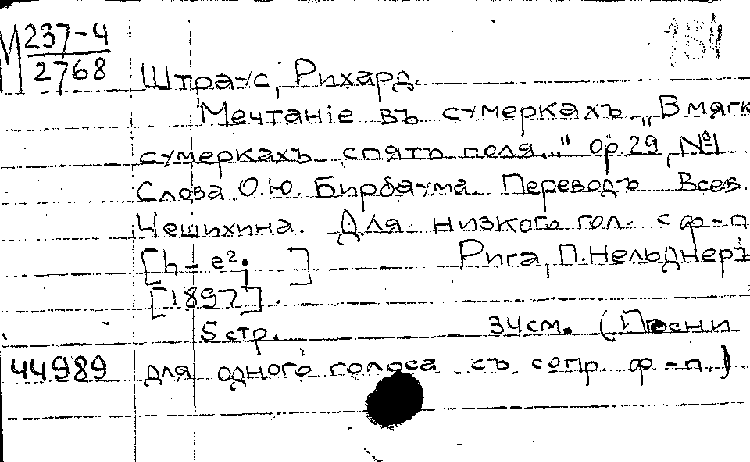 М 237-4
2768
Штраус, Рихард.
Мечтаніе въ сумеркахъ „В мягк
сумеркахъ спятъ поля..." ор. 29, №1
Слова О.Ю. Бирбаума. Переводъ Всев.
Чешихина. Для низкого гол. с ф-п
[h - e².]
Рига, П. Нельднеръ
[1897].
5 стр. 34 см. (Песни
44989 для одного голоса съ сопр. ф-п.)